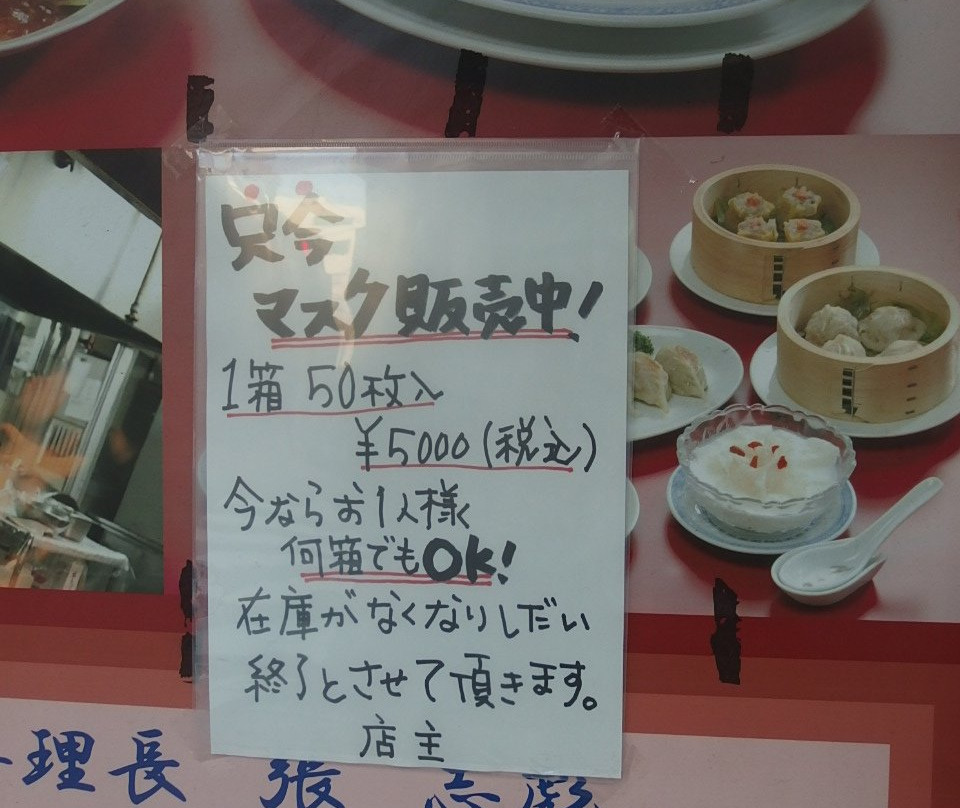 只今
マスク販売中！
1箱 50枚入
¥5000(税込)
今ならお1人様
何箱でもOK！
在庫がなくなりしだい
終了とさせて頂きます。
店主
理長 張